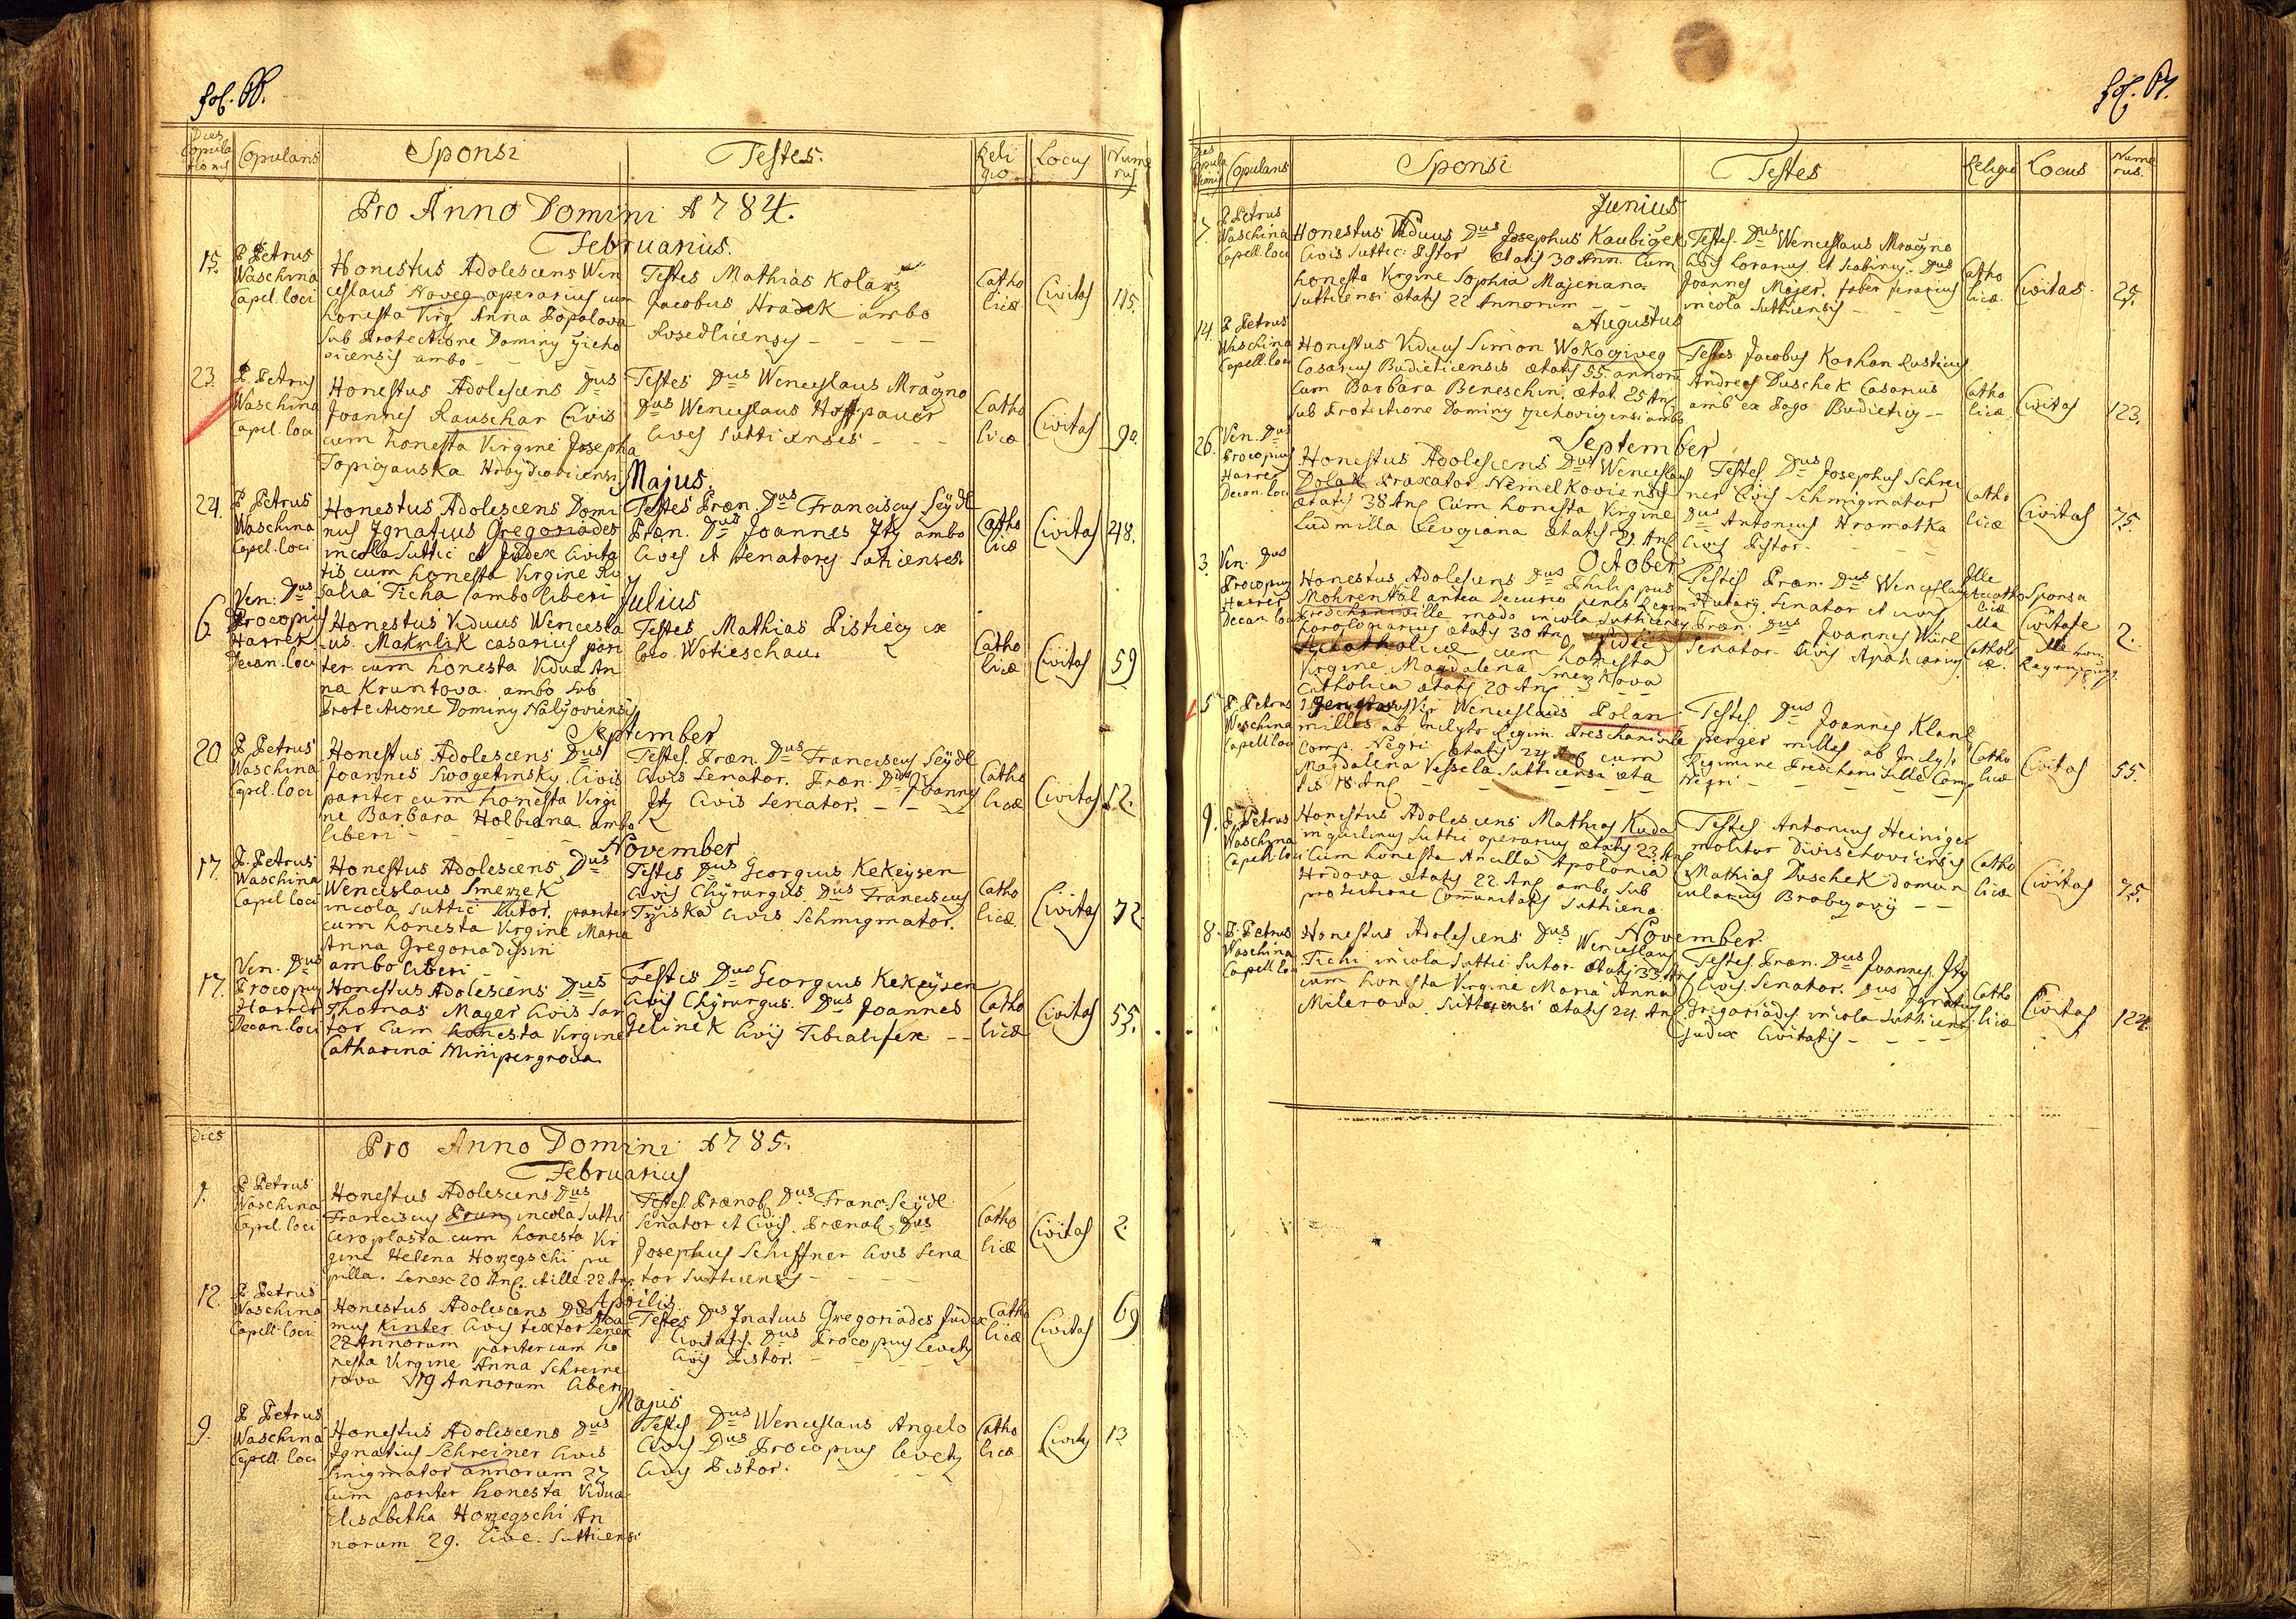 fol. 66.
Dies Copulationis
Copulans
Sponsi
Testes.
Religio
Locus
Numerus
Pro Anno Domini 1784.
Februarius.
15.
P Petrus
Waschina
Capel. loci
Honestus Adolescens Wen
ceslaus Noveg operarius cum
honesta Virg Anna Popalova
sub Protectione Dominy Zicho
vicensis ambo
Testes Mathias Kolarz
Jacobus Hradek ambo
Rosedlicensy
Catho
licæ
Civitas
115.
23.
P Petrus
Waschina
Capel. loci
Honestus Adolescens Dus
Joannes Rauschar Civis
cum honesta Virgine Josepha
Testes Dus Wenceslaus Mračno
Dus Wenceslaus Hoffpauer
Cives Sutticenses
Catho
licæ
Civitas
90.
Majus.
24.
P Petrus
Waschina
Capel. loci
Honestus Adolescens Domi
nus Ignatius Gregoriades
incola Suttic et Judex Civita
tis cum honesta Virgine Ro
salia Ticha ambo liberi
Testes Præn. Dus Franciscus Seydl
Præn. Dus Joannes Ity ambo
Cives et Senatores Suticenses.
Catho
licæ
Civitas
248.
Julius
6.
Ven. Dus
Procopius
Harrer
Decan. loci
Honestus Viduus Wencesla
us Makrlik casarius pari
ter cum honesta Vidua An
na Kruntova ambo sub
Protectione Dominy Nalžoviensis
Testes Mathias Pistiecz ex
loco Wotieschau.
Catho
licæ
Civitas
59
September
20
P Petrus
Waschina
Capel. loci
Honestus Adolescens Dus
Joannes Swogetinsky Civis
pariter cum honesta Virgi
ne Barbara Holbiana ambo
liberi
Testes. Præn. Dus Franciscus Seydl
Civis Senator. Præn. Dus Joannes
Ity Civis Senator.
Catho
licæ
Civitas
12.
November
17.
P. Petrus
Waschina
Capel loci
Honestus Adolescens Dus
Wenceslaus Smerzek
incola Suttic Sutor. pariter
cum honesta Virgine Maria
Anna Gregoriadisin
ambo liberi
Testes Dus Georgius Kekeysen
Civis Chyrurgus. Dus Franciscus
Tržiska Civis Schmigmator.
Catho
licæ
Civitas
72
17.
Ven. Dus
Procopius
Harrer
Decan. loci
Honestus Adolescens Dus
Thomas Mager Civis Sar
tor Cum honesta Virgine
Catharina Minipergrova
Testis Dus Georgius Kekeysen
Civis Chyrurgus. Dus Joannes
Gelinek Civis Tibialifex
Catho
licæ
Civitas
55.
Dies
Pro Anno Domini 1785.
Februarius
1.
P Petrus
Waschina
Capel. loci
Honestus Adolescens Dus
Franciscus Prun incola Suttic
Ceroplasta cum honesta Vir
gine Helena Horzegschi pu
pilla. Senex 20 An. Aille 22 An.
Testes Prænob Dus Franc. Seydl
Senator et Civis. Prænob. Dus
Josephus Schiffner Civis Sena
tor Sutticensis
Catho
licæ
Civitas
2.
Aprilis
12.
P Petrus
Waschina
Capell. loci
Honestus Adolescens Dus Tho
mus Kinter Civis textor Senex
22 Annorum pariter cum ho
nesta Virgine Anna Schreine
rova 19 Annorum liberi
Testes Dus Ignatius Gregoriades Judex
Civitatis. Dus Procopius Levety
Civis Pistor.
Catho
licæ
Civitas
69
Majus
9.
P Petrus
Waschina
Capell. loci
Honestus Adolescens Dus
Ignatius Schreiner Civis
Smigmator annorum 27
cum pariter honesta Vidua
Elisabetha Horzegschi An
norum 29. Cive. Sutticensi
Testes Dus Wenceslaus Angelo
Civis Dus Procopius Levety
Civis Pistor.
Catho
licæ
Civitas
13
fol. 67.
Dies Copulationis
Copulans
Sponsi
Testes
Religio
Locus
Numerus.
Junius
7.
P Petrus
Waschina
Capell. loci
Honestus Viduus Dus Josephus Kaubigek
Civis Suttic. Pistor ætatis 30 Ann. Cum
honesta Virgine Sophia Majeriana
Sutticensi ætatis 22 Annorum
Testes. Dus Wenceslaus Mračno
Civis Coriarius et Scabinus. Dus
Joannes Majer. faber ferarius
incola Sutticensis
Catho
licæ.
Civitas
25.
Augustus
14.
P Petrus
Waschina
Capell. loci
Honestus Viduus Simon Wokogiveg
Casarius Budieticensis ætatis 55. annoru
Cum Barbara Beneschin, ætat. 25 An
sub Protectione Dominy Zichovicensi ambo
Testes Jacobus Korhan Rusticus
Andreas Duschek Casarius
amb ex Pago Budieticz
Catho
licæ
Civitas
123.
September
26.
Ven. Dus
Procopius
Harrer
Decan. loci
Honestus Adolescens Dus Wenceslaus
Dolak Braxator Nemelkoviensis
ætatis 38 An Cum honesta Virgine
Ludmilla Levoyiana ætatis 21. An
Testes. Dus Josephus Schrei
ner Civis Schmigmator
Dus Antonius Hromatka
Civis Pistor.
Catho
licæ
Civitas
75.
October
3.
Ven. Dus
Procopius
Harrer
Decan. loci
Honestus Adolescens Dus Philippus
Mohrental antea Decurio penes Regim
Preschainville modo incola Sutticensis
horologiarius ætatis 30 An
cum honesta
Virgine Magdalena Smerzkova
Catholica ætatis 20 An
Testes Præn. Dus Wenceslaus
Senator et civis
Præn. Dus Joannes Würl
Senator Civis Apathearius
Ille
licæ
illa
Catholi
cæ.
Sponsa
Civitate
2.
5
P. Petrus
Waschina
Capell. loci
Vir Wenceslaus Polan
milles ab Inclyto Regim. Preschainvile
Comp. Negri ætatis 24 An cum
Magdalena Vessela Sutticensi æta
tis 18 An
Testes. Dus Joannes Klane
perger milles ab Inclyto
Regimine Preschainville Comp
Negri
Catho
licæ
Civitas
55.
9.
P. Petrus
Waschina
Capell. loci
Honestus Adolescens Mathias Kuda
inquilinus Suttic operarius ætatis 23 An
Cum honesta Ancilla Apolonia
Hrdova ætatis 22 An ambo sub
protectione Comunitatis Suttiena
Testes Antonius Heiniger
molitor Divischoviensis
Mathias Duschek domun
cularius Brabzovÿ
Catho
licæ
Civitas
75.
November.
8.
P. Petrus
Waschina
Capell. loci
Honestus Adolescens Dus Wenceslaus
Tichi incola Suttic. Sutor. ætatis 33 An
cum honesta Virgine Maria Anna
Milerova Sutticensi ætatis 24. An
Testes. Præn. Dus Joannes Ity
Civis Senator. Dus Ignatius
Gregoriades incola Sutticens
Judex Civitatis
Catho
licæ
Civitas
124.